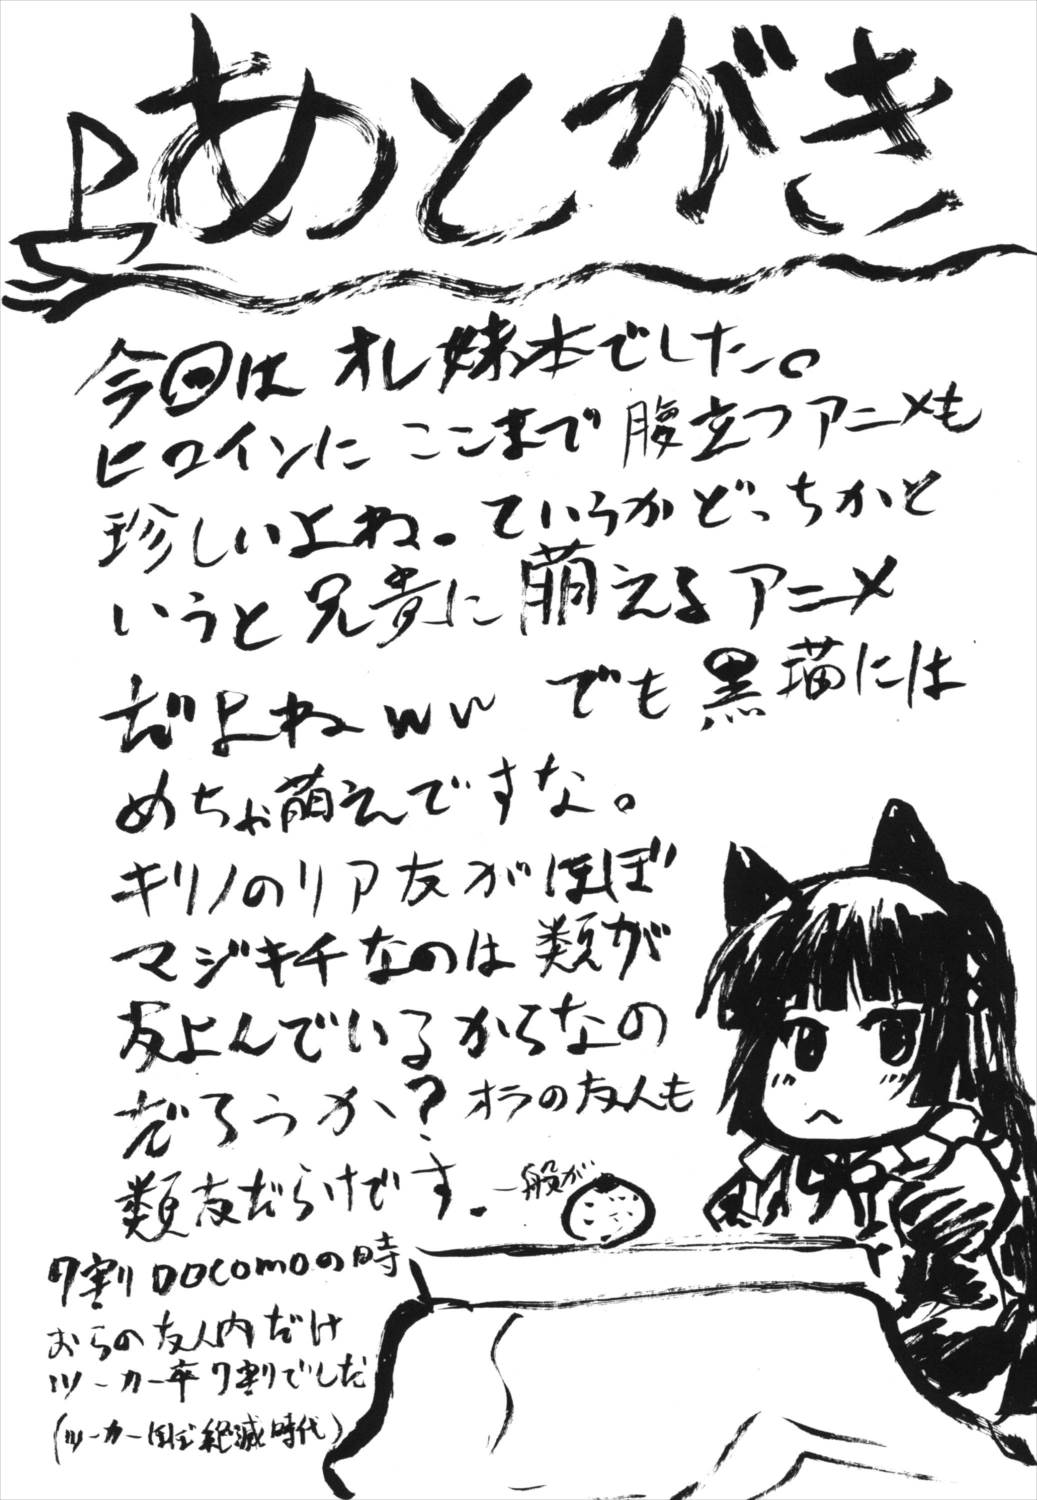 あとがき
今回は オレ妹本でした。
ヒロインに ここまで 腹立つアニメも
珍しいよね。ていうかどっちかと
いうと 兄貴に 萌えるアニメ
だよねww でも 黒猫には
めちゃ萌えですな。
キリノのリア友がほぼ
マジキチなのは 類が
友よんでいるからなの
だろうか? オラの友人も
類友だらけです。 一般が
7割 DOCOMOの時
おらの友人内だけ
ツーカー率7割でした
(ツーカーほぼ絶滅時代)